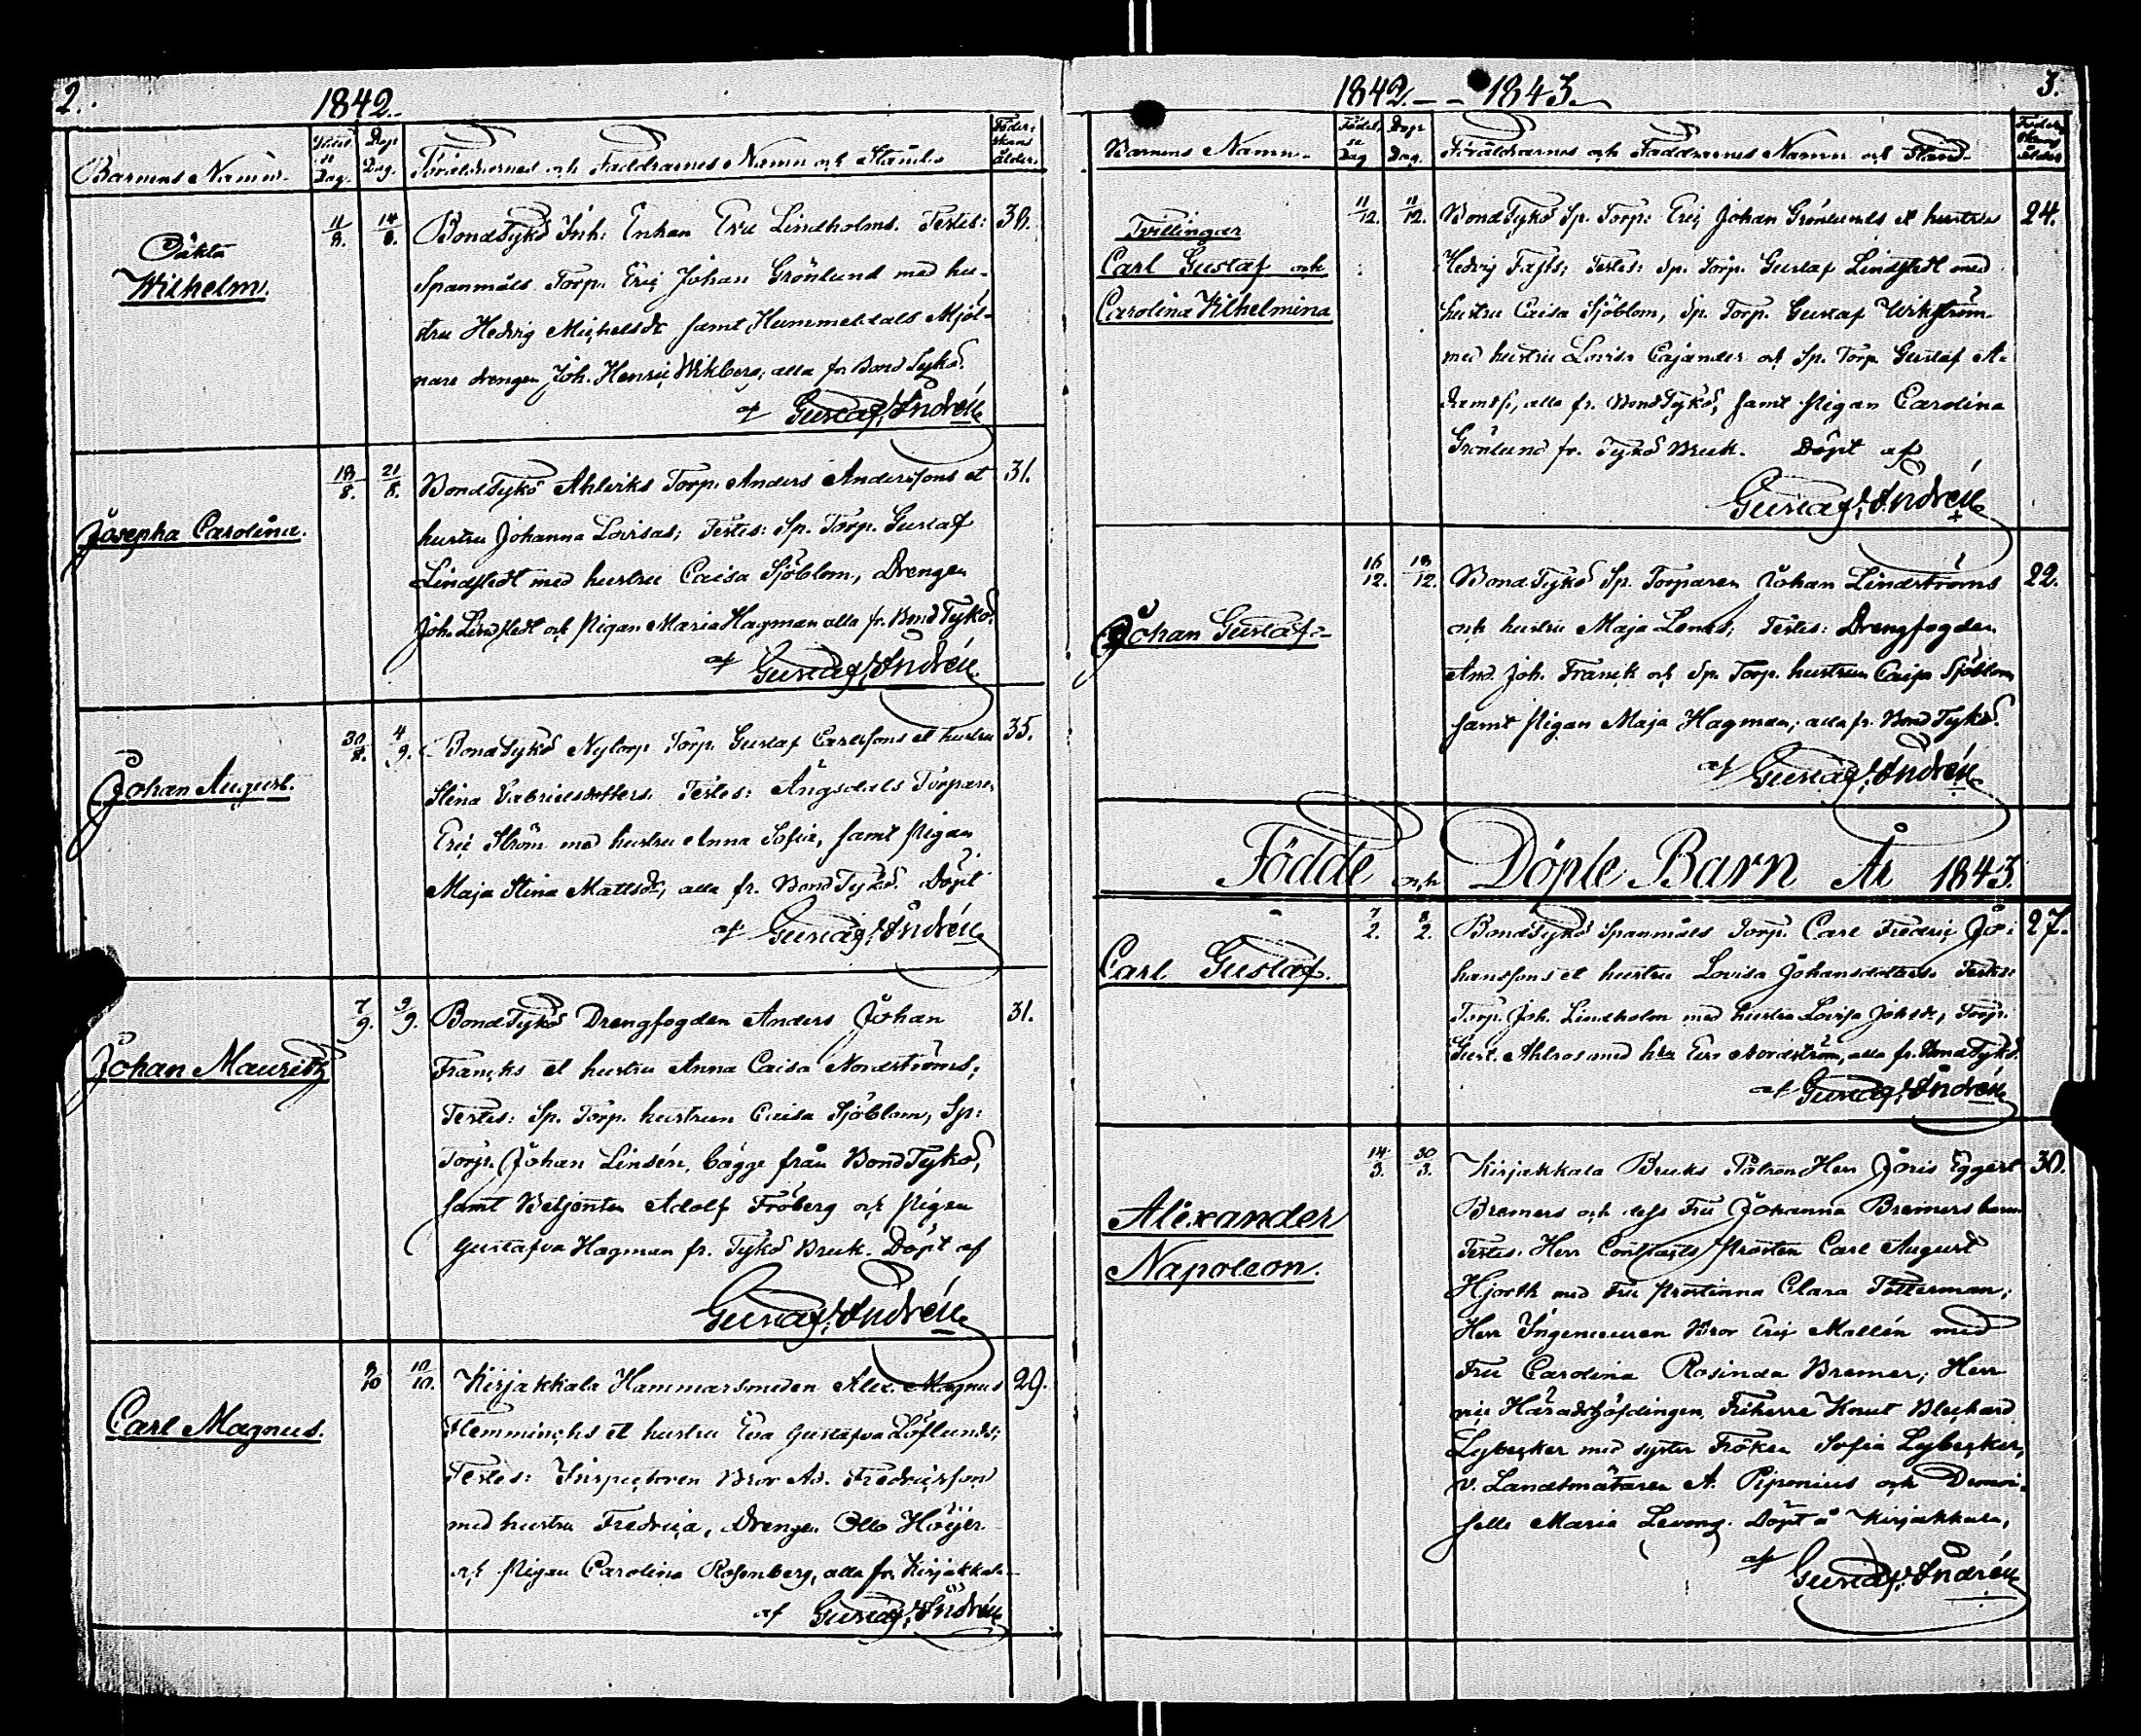 2.
1842.
Barnens Namn.
Födel-
se
Dag.
Dop
Dag.
Föräldrarnes och Faddrarnes Namn och Stånd.
Föder-
skans
ålder.
Oäkta
Wilhelm.
11/8.
14/8.
BondTykö Inh. Enkan Eva Lindholms. Testes:
38.
Spanmåls Torp. Eric Johan Grönlund med hu-
stru Hedvig Michelsdr samt Hummeldals Mjöl-
nare drengen Joh. Henric Wikberg, alla fr BondTykö.
af Gustaf Andrén
Josepha Carolina.
18/8.
21/8.
BondTykö Ahlriks Torp. Anders Anderssons et
31.
hustru Johanna Lovisas; Testes: Sp. Torp. Gustaf
Lindstedt med hustru Caisa Sjöblom, Drengen
Joh. Lindstedt och Pigan Maria Hagman alla fr. BondTykö.
af Gustaf Andrén
Johan August.
30/8.
4/9.
BondTykö Nytorp Torp. Gustaf Carlssons et hustru
35.
Stina Gabrielsdotters. Testes: Ängsdals Torparen
Eric Ström med hustru Anna Sofia, samt Pigan
Maja Stina Mattsdr, alla fr. BondTykö. Döpt
af Gustaf Andrén
Johan Mauritz
7/9.
9/9.
BondTykö Drengfogden Anders Johan
31.
Francks et hustru Anna Caisa Nordströms;
Testes: Sp. Torp. hustrun Caisa Sjöblom, Sp:
Torp. Johan Lindén, bägge från BondTykö,
samt Betjenten Adolf Fröberg och Pigan
Gustafva Hagman fr. Tykö Bruk. Döpt af
Gustaf Andrén
Carl Magnus.
8/10
10/10.
Kirjakkala Hammarsmeden Alex. Magnus
29.
Flemminchs et hustru Eva Gustafva Löflunds;
Testes: Inspectoren Bror Ad. Fredricsson
med hustru Fredrica, Drengen Otto Höijer
och Pigan Carolina Rosenberg, alla fr. Kirjakkala
af Gustaf Andrén
1842. - - 1843.
3.
Barnens Namn.
Födel-
se
Dag
Dop
Dag.
Föräldrarnes och Faddrarnes Namn och Stånd.
Föder-
skans
ålder
Tvillingar
Carl Gustaf och
Carolina Wilhelmina
11/12.
11/12.
BondTykö Sp. Torp: Eric Johan Grönlunds et hustru
24.
Hedvig Fasts; Testes: Sp. Torp. Gustaf Lindstedt med
hustru Caisa Sjöblom, Sp. Torp. Gustaf Wikström
med hustru Lovisa Cajander och Sp. Torp. Gustaf A-
damss, alla fr. BondTykö, samt Pigan Carolina
Grönlund fr. Tykö Bruk. Döpt af
Gustaf Andrén
Johan Gustaf
16/12.
18/12.
BondTykö Sp. Torparen Johan Lindströms
22.
och hustru Maja Lenas; Testes: Drengfogden
And. Joh. Franck och Sp. Torp. hustrun Caisa Sjöblom
samt Pigan Maja Hagman, alla fr. BondTykö.
af Gustaf Andrén
Födde och Döpte Barn År 1843.
Carl Gustaf.
7/2.
8/2.
BondTykö Spanmåls Torp. Carl Fredric Jo-
27.
hanssons et hustru Lovisa Johansdotters. Testes:
Torp. Joh. Lindholm med hustru Lovisa Johsdr, Torp.
Gust. Ahlros med hu Eva Nordström, alla fr. BondTykö.
af Gustaf Andrén
Alexander
Napoleon.
14/3.
30/3.
Kirjakkala Bruks Patron Herr Joris Eggert
30.
Bremers och dess Fru Johanna Bremers barn
Testes. Herr Contracts Prosten Carl August
Hjorth med Fru Prostinna Clara Tötterman;
Herr Ingenieuren Bror Eric Mallén med
Fru Carolina Rosinda Bremer, Herr
vice Häradshöfdingen, Friherre Knut Blechard
Lybecker med syster Fröken Sofia Lybecker,
v. Landtmätaren A. Piponius och Demoi-
selle Maria Levong. Döpt å Kirjakkala,
af Gustaf Andrén